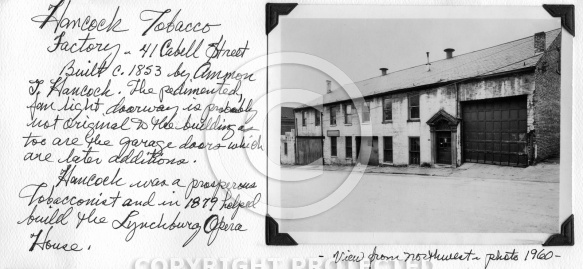 Hancock Tobacco
Factory - 41 Cabell Street
Built c. 1853 by Ammon
G. Hancock. The pedimented,
fan light doorway is probably
not original to the building as
too are the garage doors which
are later additions.
Hancock was a prosperous
tobacconist and in 1879 helped
build the Lynchburg Opera
House.
- View from northwest - photo 1960 -
COPYRIGHT PROTECTED